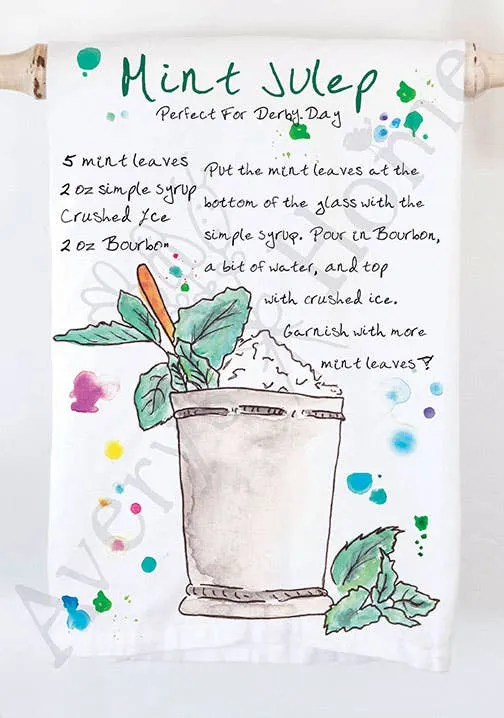 Mint Julep
Perfect For Derby Day
5 mint leaves
2 oz simple syrup
Crushed Ice
2 oz Bourbon
Put the mint leaves at the
bottom of the glass with the
simple syrup. Pour in Bourbon,
a bit of water, and top
with crushed ice.
Garnish with more
mint leaves!
Avery & Home